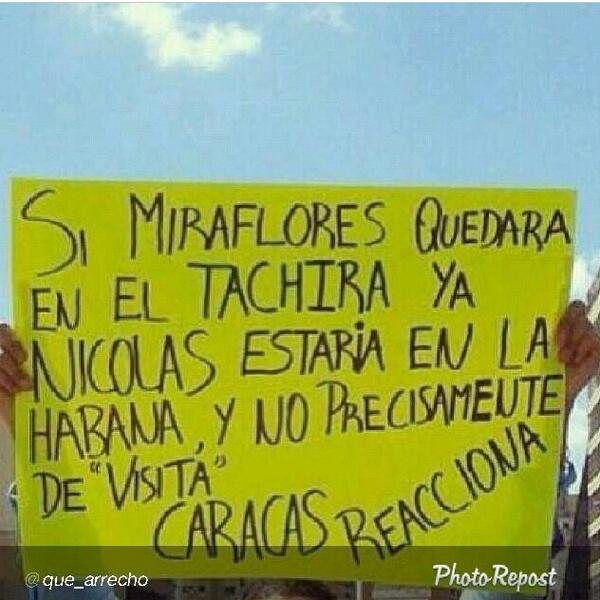 SI MIRAFLORES QUEDARA
EN EL TACHIRA YA
NICOLAS ESTARIA EN LA
HABANA, Y NO PRECISAMENTE
DE "VISITA"
CARACAS REACCIONA
@que_arrecho
Photo Repost